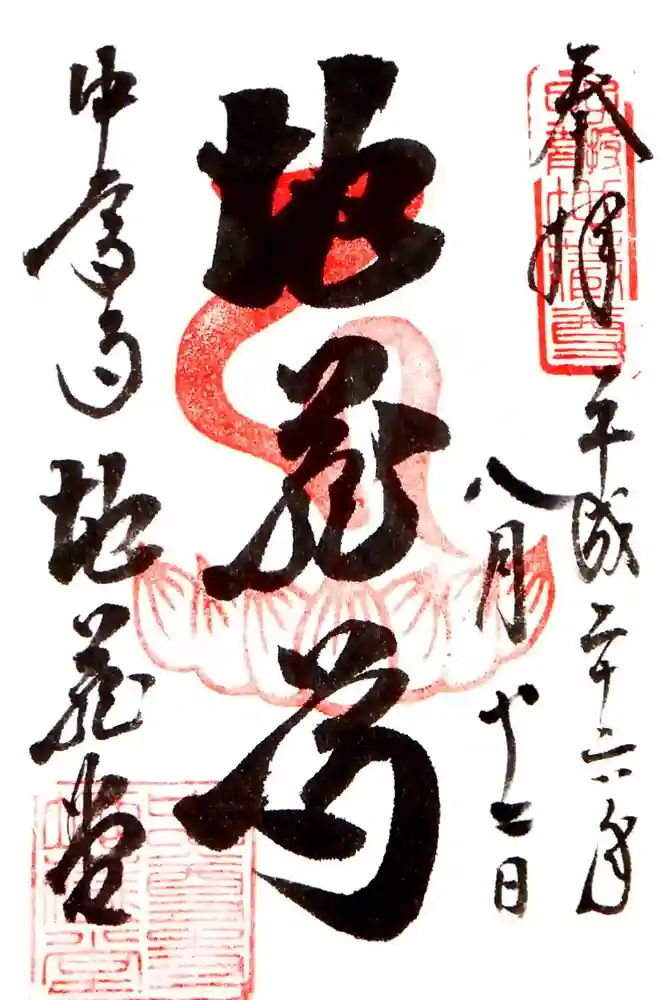 奉拝
平成二十六年
八月十二日
地蔵尊
中尊寺 地蔵堂